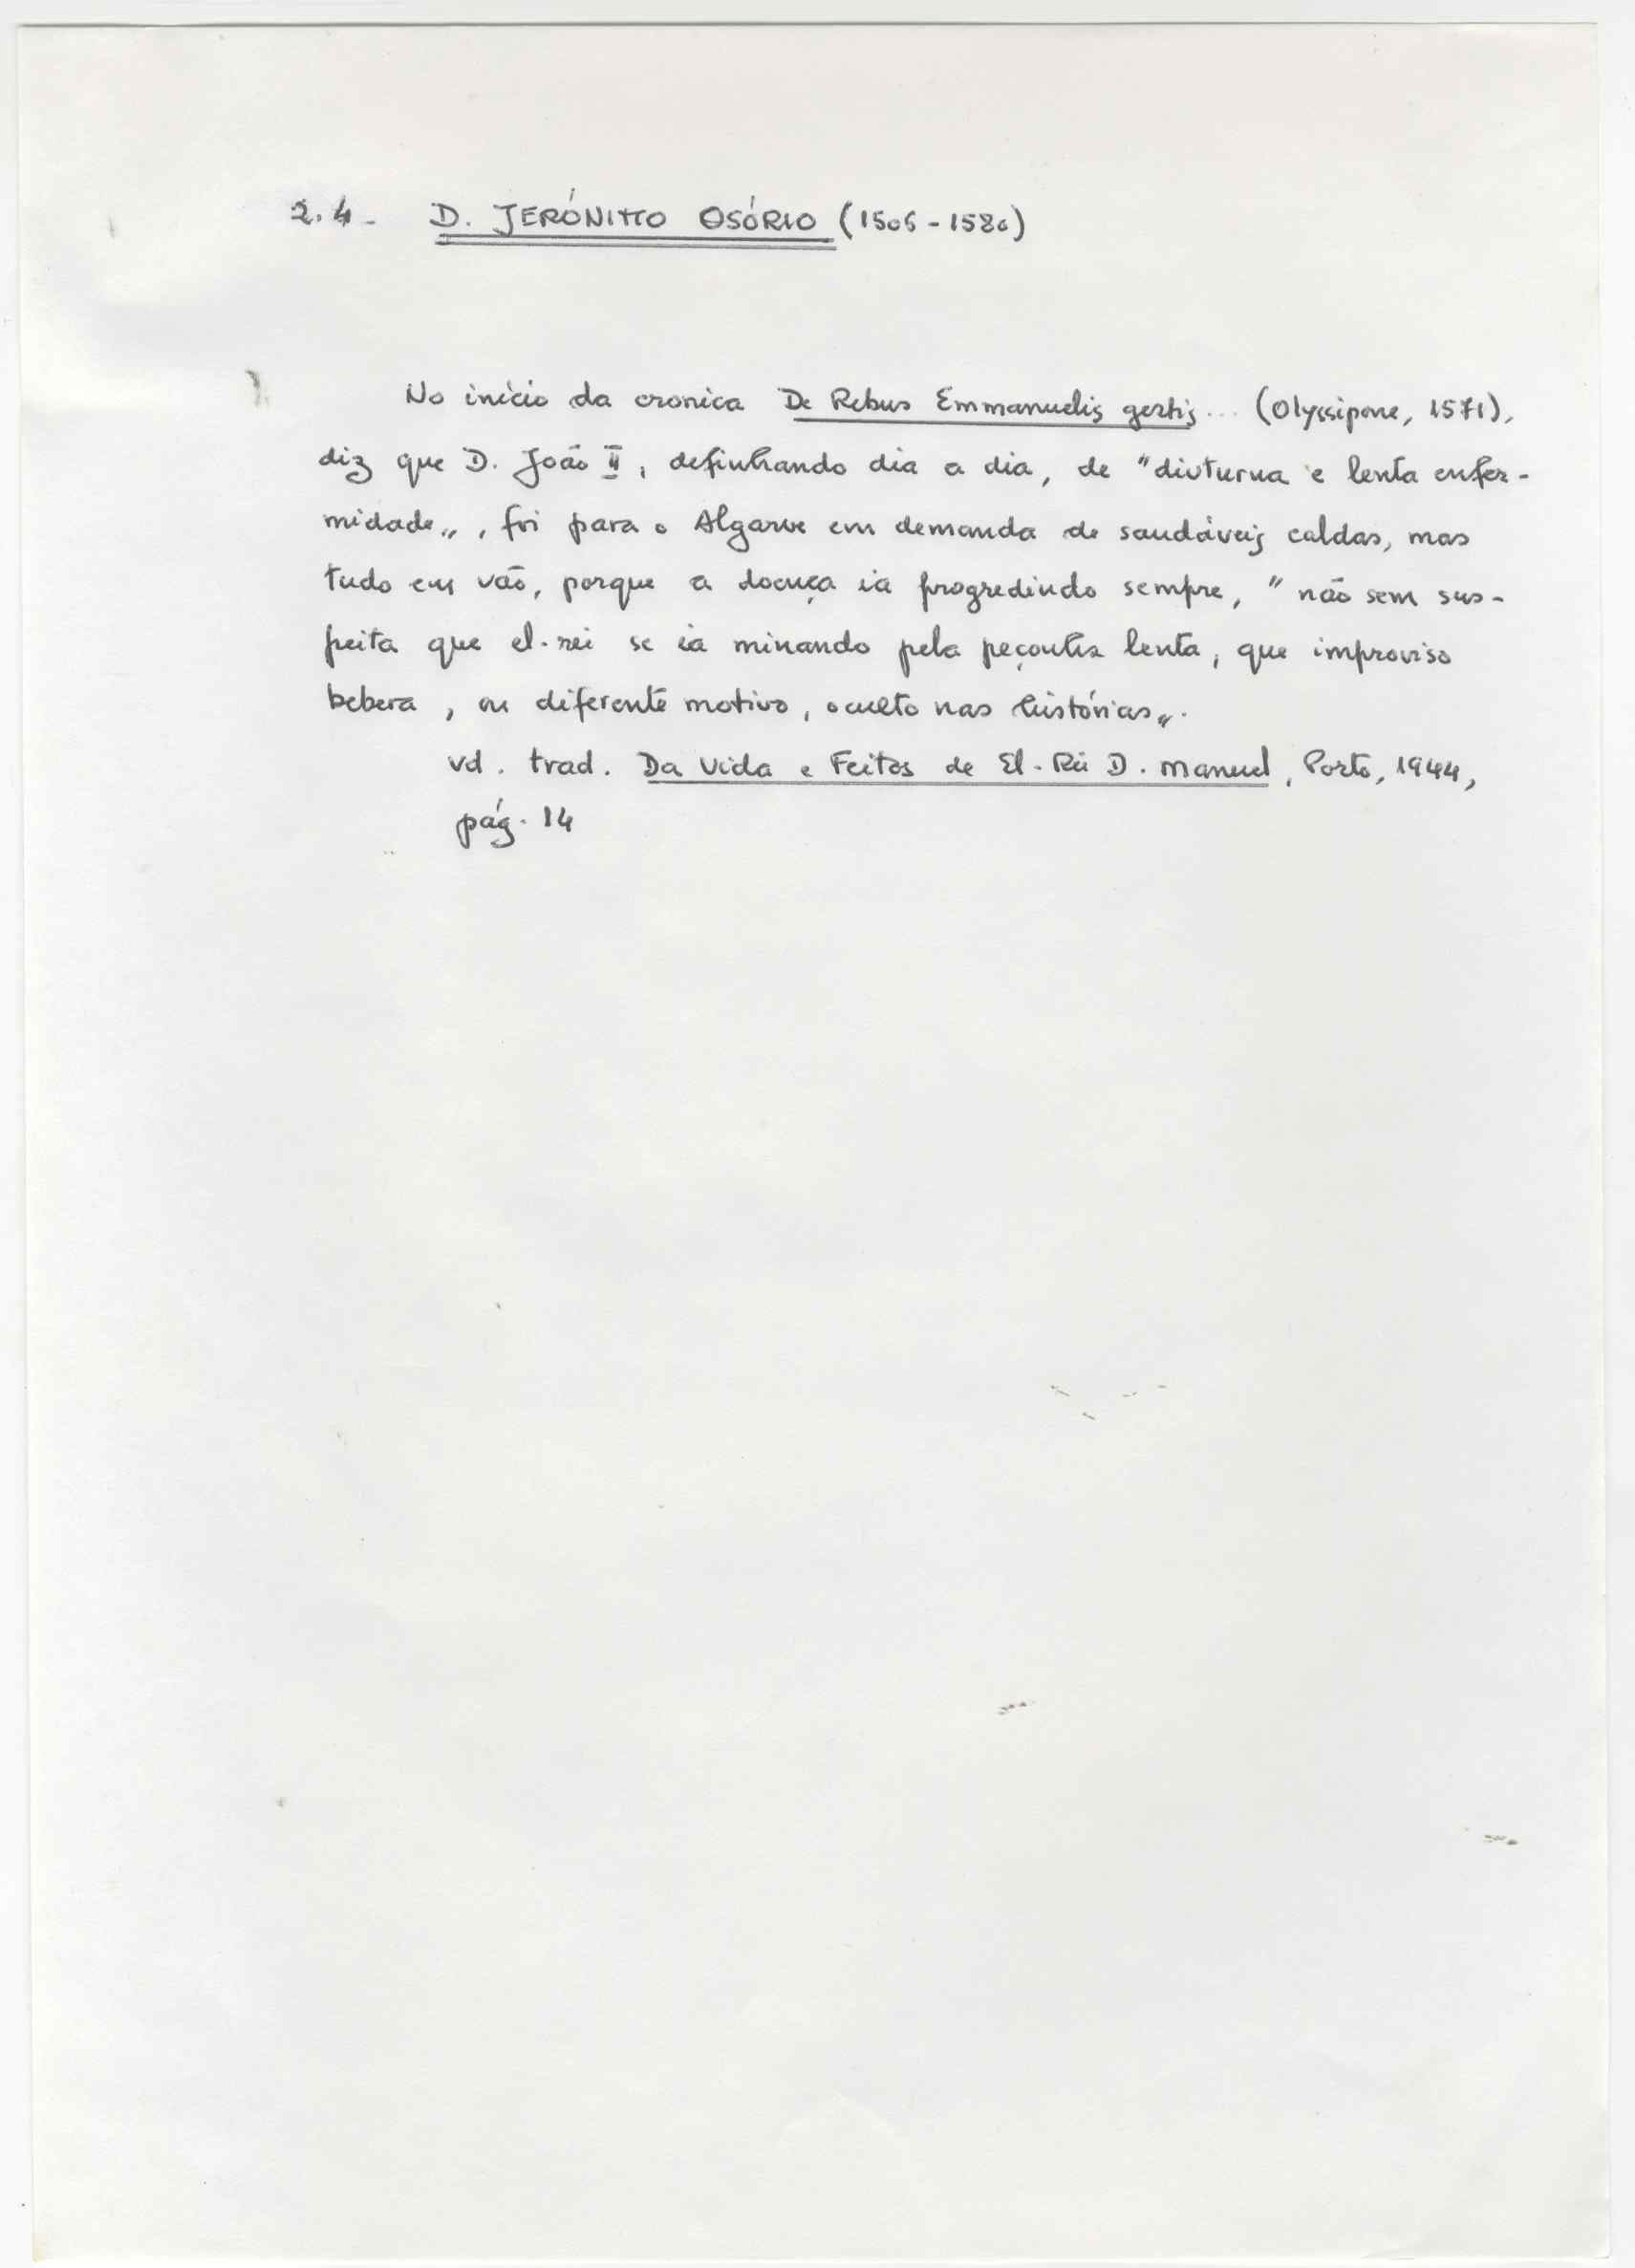 2.4 - D. JERÓNIMO OSÓRIO (1506-1580)
No início da cronica De Rebus Emmanuelis gestis... (Olyssipone, 1571),
diz que D. João II, definhando dia a dia, de "diuturna e lenta enfer-
midade", foi para o Algarve em demanda de saudáveis caldas, mas
tudo em vão, porque a doença ia progredindo sempre, "não sem sus-
peita que el-rei se ia minando pela peçonha lenta, que improviso
bebera, ou diferente motivo, oculto nas histórias".
vd. trad. Da Vida e Feitos de El-Rei D. Manuel, Porto, 1944,
pág. 14